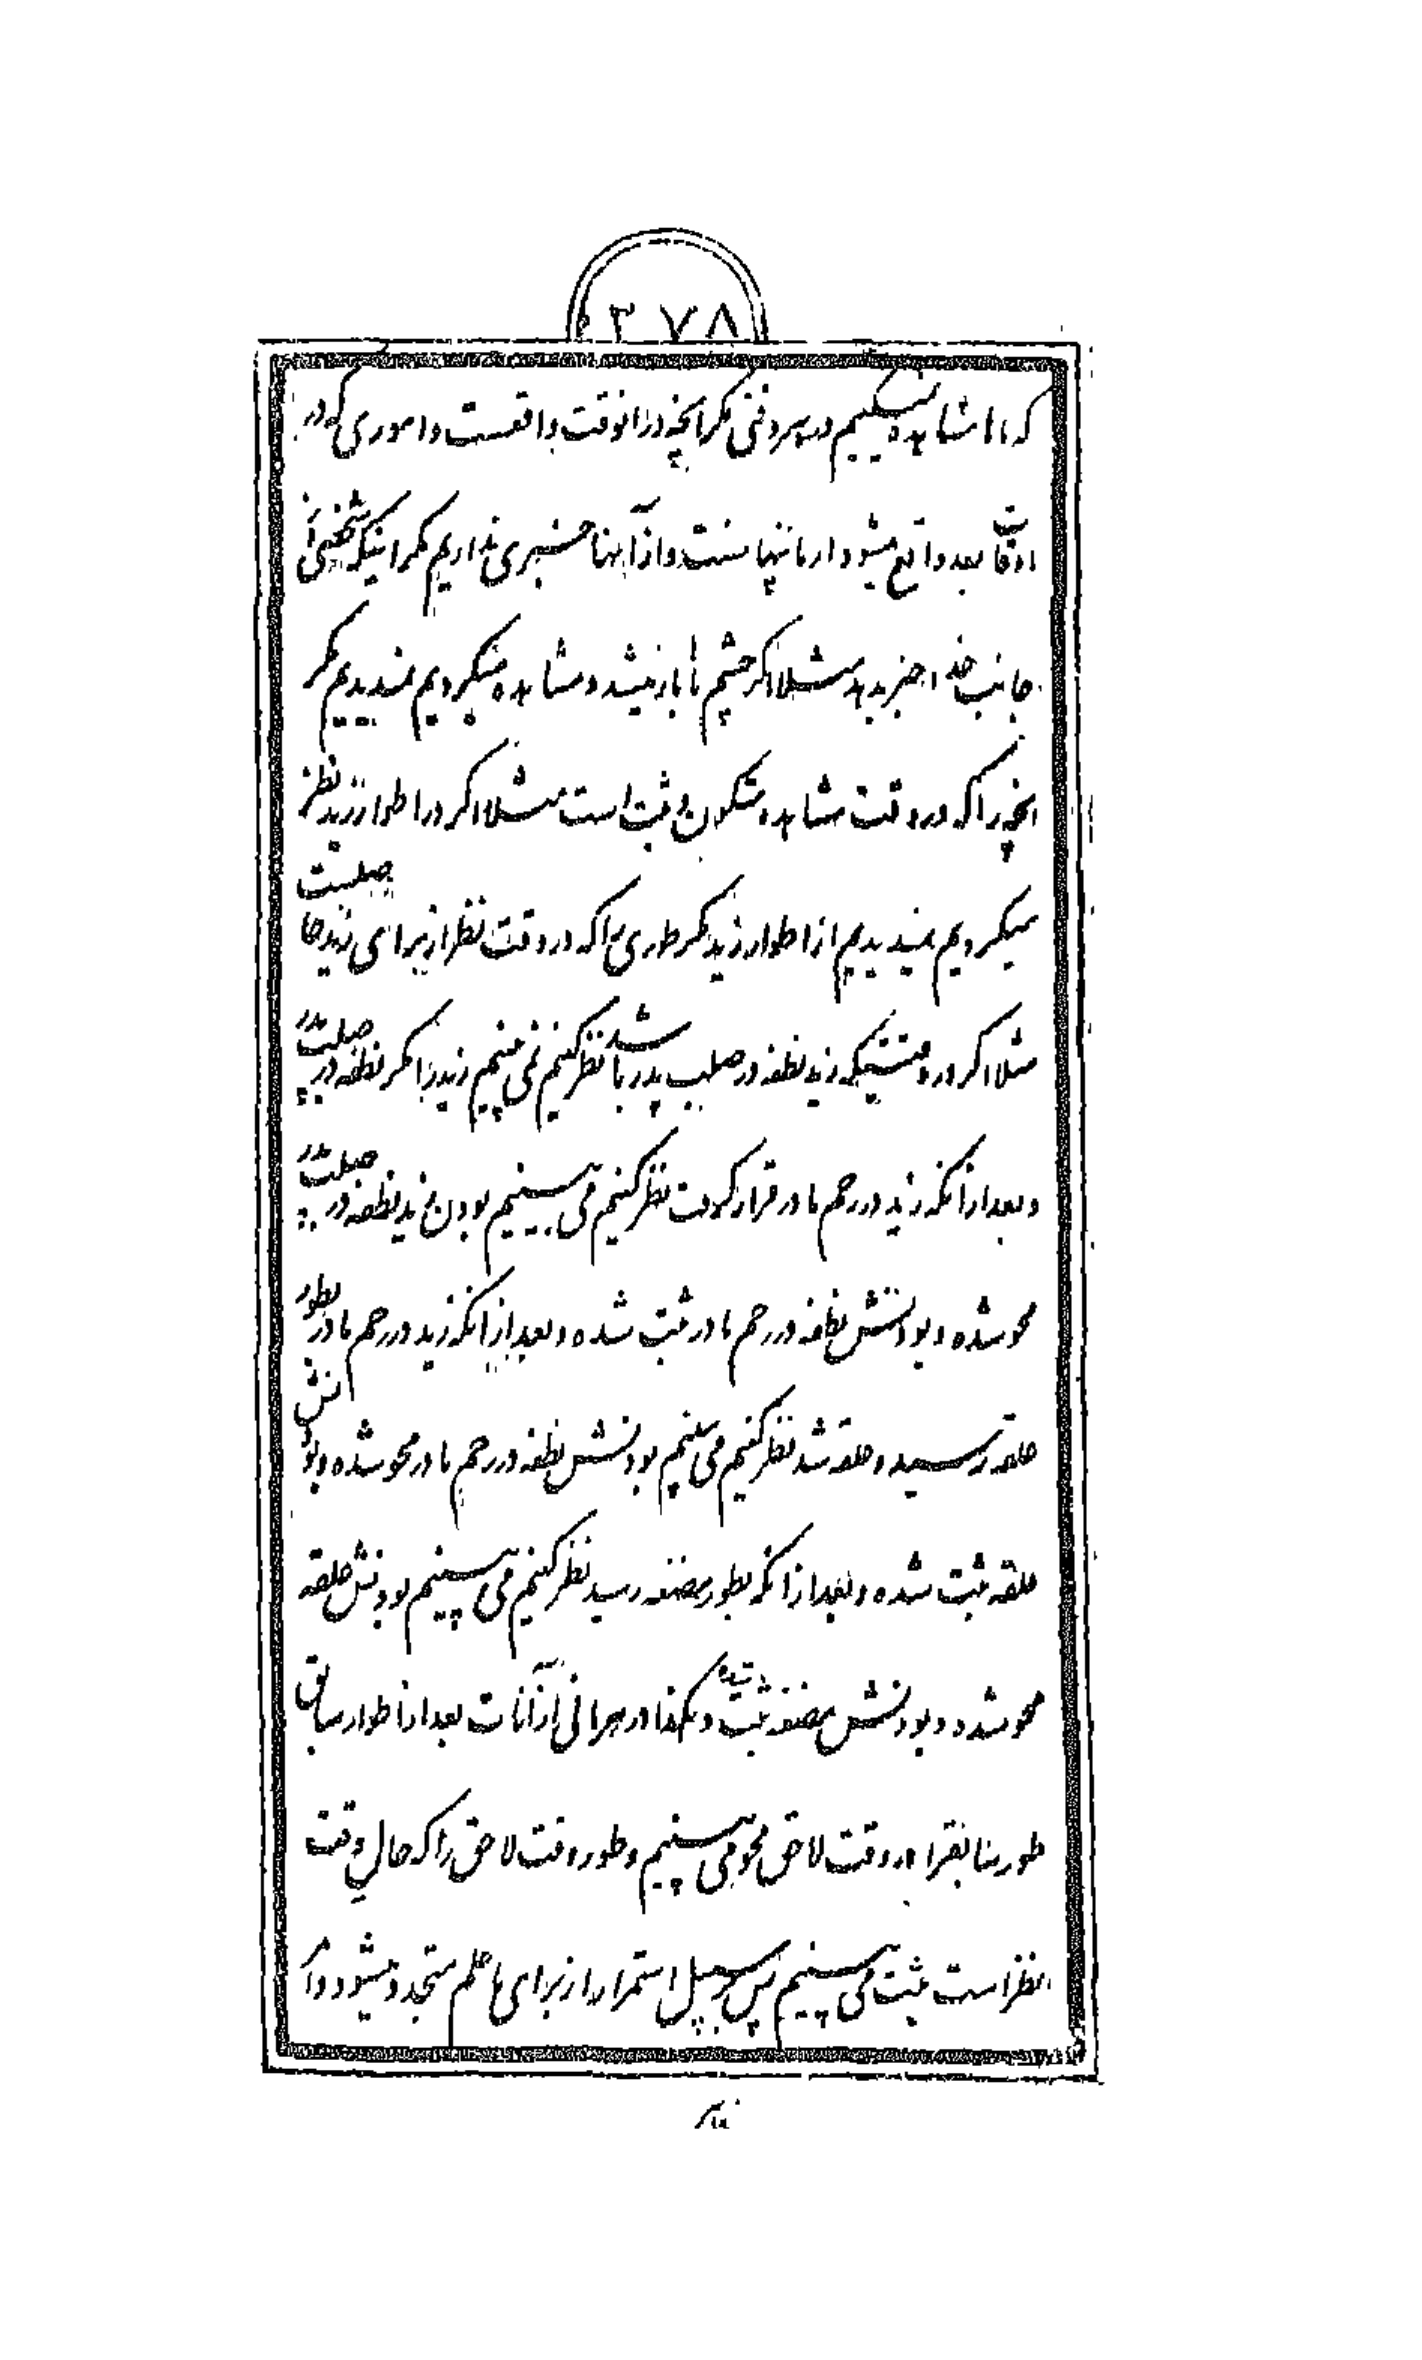 ۳۷۸
که ما مشاهده نمیکنیم در هر وقتی مگر آنچه در آنوقت واقعست و اموری که در
اوقات بعد واقع میشود از ما پنهانست و از آنها خبری نداریم مگر اینکه شخصی از
جانب خدا خبر بدهد مثلا اگر چشم ما باز میشد و مشاهده میکردیم نمیدیدیم مگر
آنچه را که در وقت مشاهده متکون و ثبت است مثلا اگر در اطوار زید نظر
میکردیم نمیدیدیم از اطوار زید مگر طوری را که در وقت نظر از برای زید حاصلست
مثلا اگر در وقتیکه زید نطفه در صلب پدر باشد نظر کنیم نمی بینیم زید را مگر نطفه در صلب پدر
و بعد از آنکه زید در رحم مادر قرار گرفت نظر کنیم می بینیم بودن زید نطفه در صلب پدر
محو شده و بودنش نطفه در رحم مادر ثبت شده و بعد از آنکه زید در رحم مادر بطور
علقه رسید و علقه شد نظر کنیم می بینیم بودنش نطفه در رحم مادر محو شده و بودنش
علقه ثبت شده و بعد از آنکه بطور مضغه رسید نظر کنیم می بینیم بودنش علقه
محو شده و بودنش مضغه ثبت شده و هکذا در هر آنی از آنات بعد از اطوار سابق
طور بنا بقرا در وقت لاحق محو می بینیم و طور وقت لاحق را که حال وقت
نظر است ثبت می بینیم پس بر سبیل استمرار از برای ما علم متجدد میشود و اگر